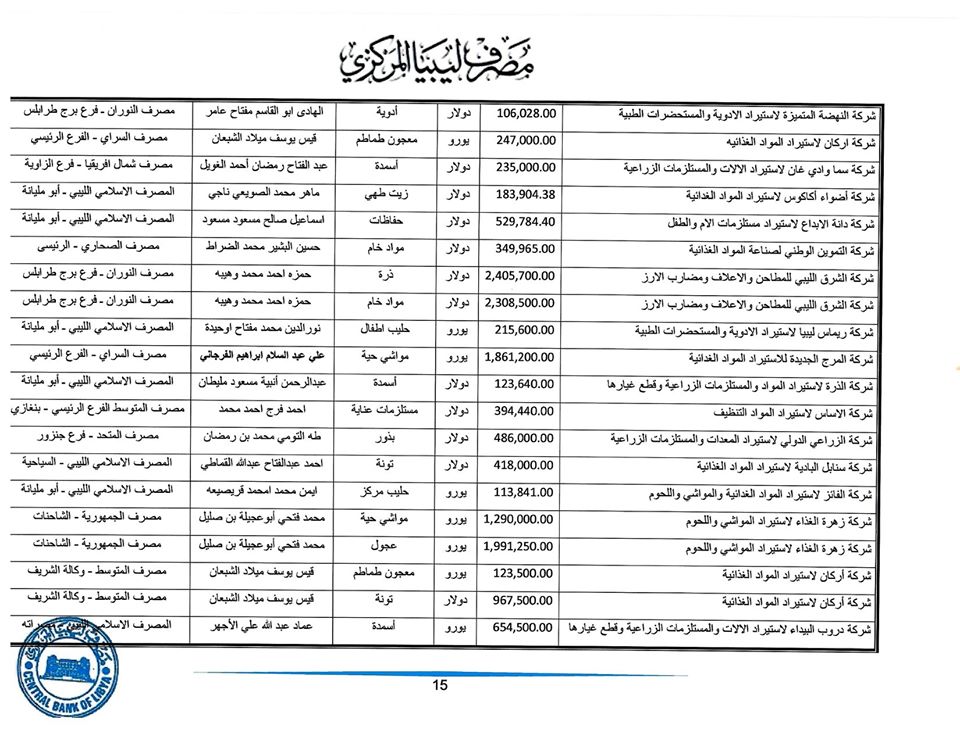 مصرف ليبيا المركزي
شركة النهضة المتميزة لاستيراد الادوية والمستحضرات الطبية 106,028.00 دولار أدوية الهادى ابو القاسم مفتاح عامر مصرف النوران - فرع برج طرابلس
شركة اركان لاستيراد المواد الغذائيه 247,000.00 يورو معجون طماطم قيس يوسف ميلاد الشبعان مصرف السراي - الفرع الرئيسي
شركة سما وادي غان لاستيراد الالات والمستلزمات الزراعية 235,000.00 دولار أسمدة عبد الفتاح رمضان أحمد الغويل مصرف شمال افريقيا - فرع الزاوية
شركة أضواء أكاكوس لاستيراد المواد الغدائية 183,904.38 دولار زيت طهي ماهر محمد الصويعي ناجي المصرف الاسلامي الليبي - أبو مليانة
شركة دانة الابداع لاستيراد مستلزمات الام والطفل 529,784.40 دولار حفاظات اسماعيل صالح مسعود مسعود المصرف الاسلامي الليبي - أبو مليانة
شركة التموين الوطني لصناعة المواد الغذائية 349,965.00 دولار مواد خام حسين البشير محمد الضراط مصرف الصحاري - الرئيسى
شركة الشرق الليبي للمطاحن والاعلاف ومضارب الارز 2,405,700.00 دولار ذرة حمزه احمد محمد وهيبه مصرف النوران - فرع برج طرابلس
شركة الشرق الليبي للمطاحن والاعلاف ومضارب الارز 2,308,500.00 دولار مواد خام حمزه احمد محمد وهيبه مصرف النوران - فرع برج طرابلس
شركة ريماس ليبيا لاستيراد الادوية والمستحضرات الطبية 215,600.00 يورو حليب اطفال نورالدين محمد مفتاح اوحيدة المصرف الاسلامي الليبي - أبو مليانة
شركة المرج الجديدة للاستيراد المواد الغدائية 1,861,200.00 يورو مواشي حية علي عبد السلام ابراهيم الفرجاني مصرف السراي - الفرع الرئيسي
شركة الذرة لاستيراد المواد والمستلزمات الزراعية وقطع غيارها 123,640.00 دولار أسمدة عبدالرحمن أنبية مسعود مليطان المصرف الاسلامي الليبي - أبو مليانة
شركة الاساس لاستيراد المواد التنظيف 394,440.00 دولار مستلزمات عناية احمد فرج احمد محمد مصرف المتوسط الفرع الرئيسي - بنغازي
شركة الزراعي الدولي لاستيراد المعدات والمستلزمات الزراعية 486,000.00 دولار بذور طه التومي محمد بن رمضان مصرف المتحد - فرع جنزور
شركة سنابل البادية لاستيراد المواد الغذائية 418,000.00 دولار تونة احمد عبدالفتاح عبدالله القماطي المصرف الاسلامي الليبي - السياحية
شركة الفائز لاستيراد المواد الغدائية والمواشي واللحوم 113,841.00 يورو حليب مركز ايمن محمد امحمد قريصيعه المصرف الاسلامي الليبي - أبو مليانة
شركة زهرة الغذاء لاستيراد المواشي واللحوم 1,290,000.00 يورو مواشي حية محمد فتحي أبوعجيلة بن صليل مصرف الجمهورية - الشاحنات
شركة زهرة الغذاء لاستيراد المواشي واللحوم 1,991,250.00 يورو عجول محمد فتحي أبوعجيلة بن صليل مصرف الجمهورية - الشاحنات
شركة أركان لاستيراد المواد الغذائية 123,500.00 يورو معجون طماطم قيس يوسف ميلاد الشبعان مصرف المتوسط - وكالة الشريف
شركة أركان لاستيراد المواد الغذائية 967,500.00 دولار تونة قيس يوسف ميلاد الشبعان مصرف المتوسط - وكالة الشريف
شركة دروب البيداء لاستيراد الالات والمستلزمات الزراعية وقطع غيارها 654,500.00 يورو أسمدة عماد عبد الله علي الأجهر المصرف الاسلامي الليبي
CENTRAL BANK OF LIBYA
15